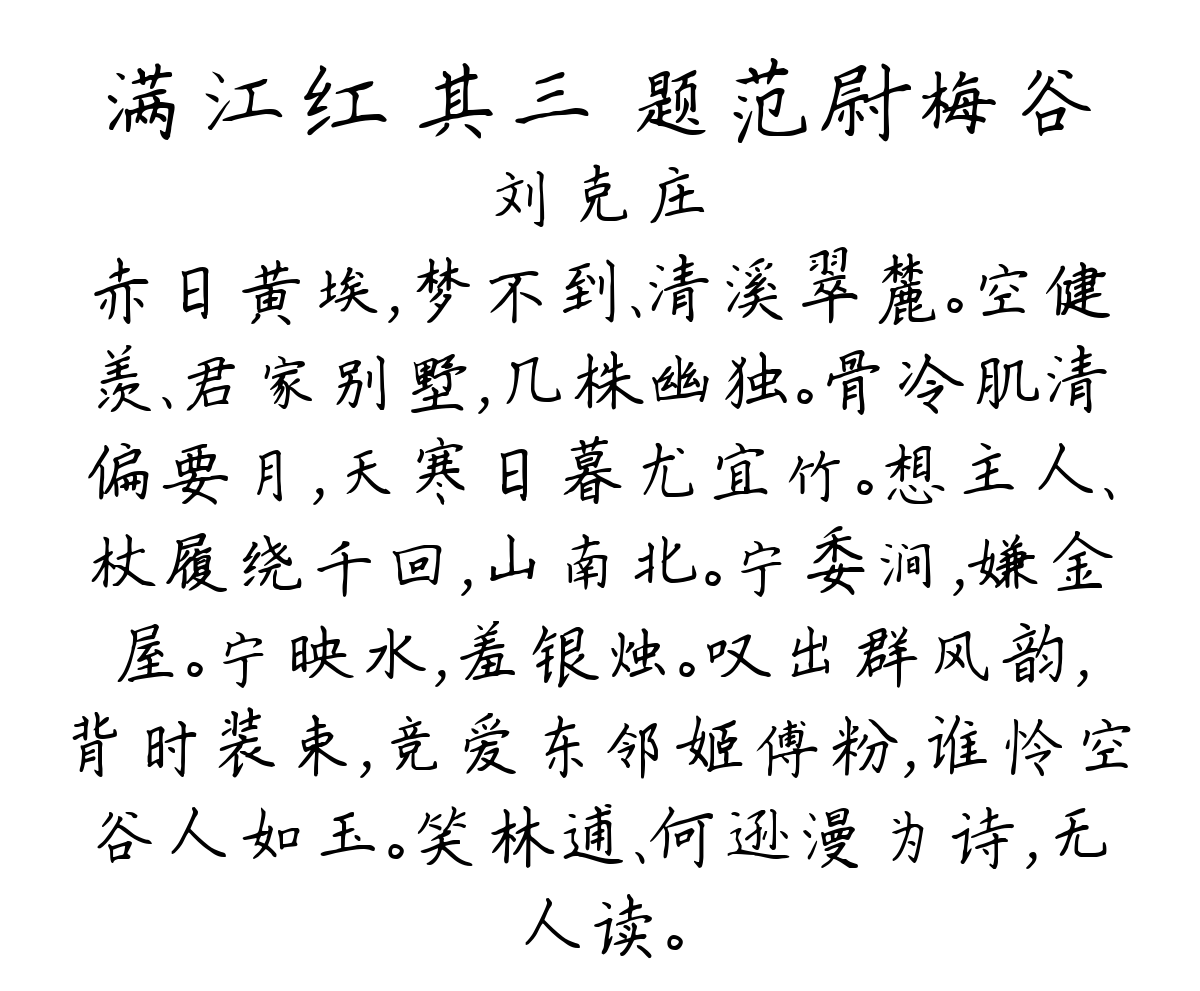 满江红 其三 题范尉梅谷
刘克庄
赤日黄埃,梦不到、清溪翠麓。空健
羡、君家别墅,几株幽独。骨冷肌清
偏要月,天寒日暮尤宜竹。想主人、
杖履绕千回,山南北。宁委涧,嫌金
屋。宁映水,羞银烛。叹出群风韵,
背时装束,竞爱东邻姬傅粉,谁怜空
谷人如玉。笑林逋、何逊漫为诗,无
人读。